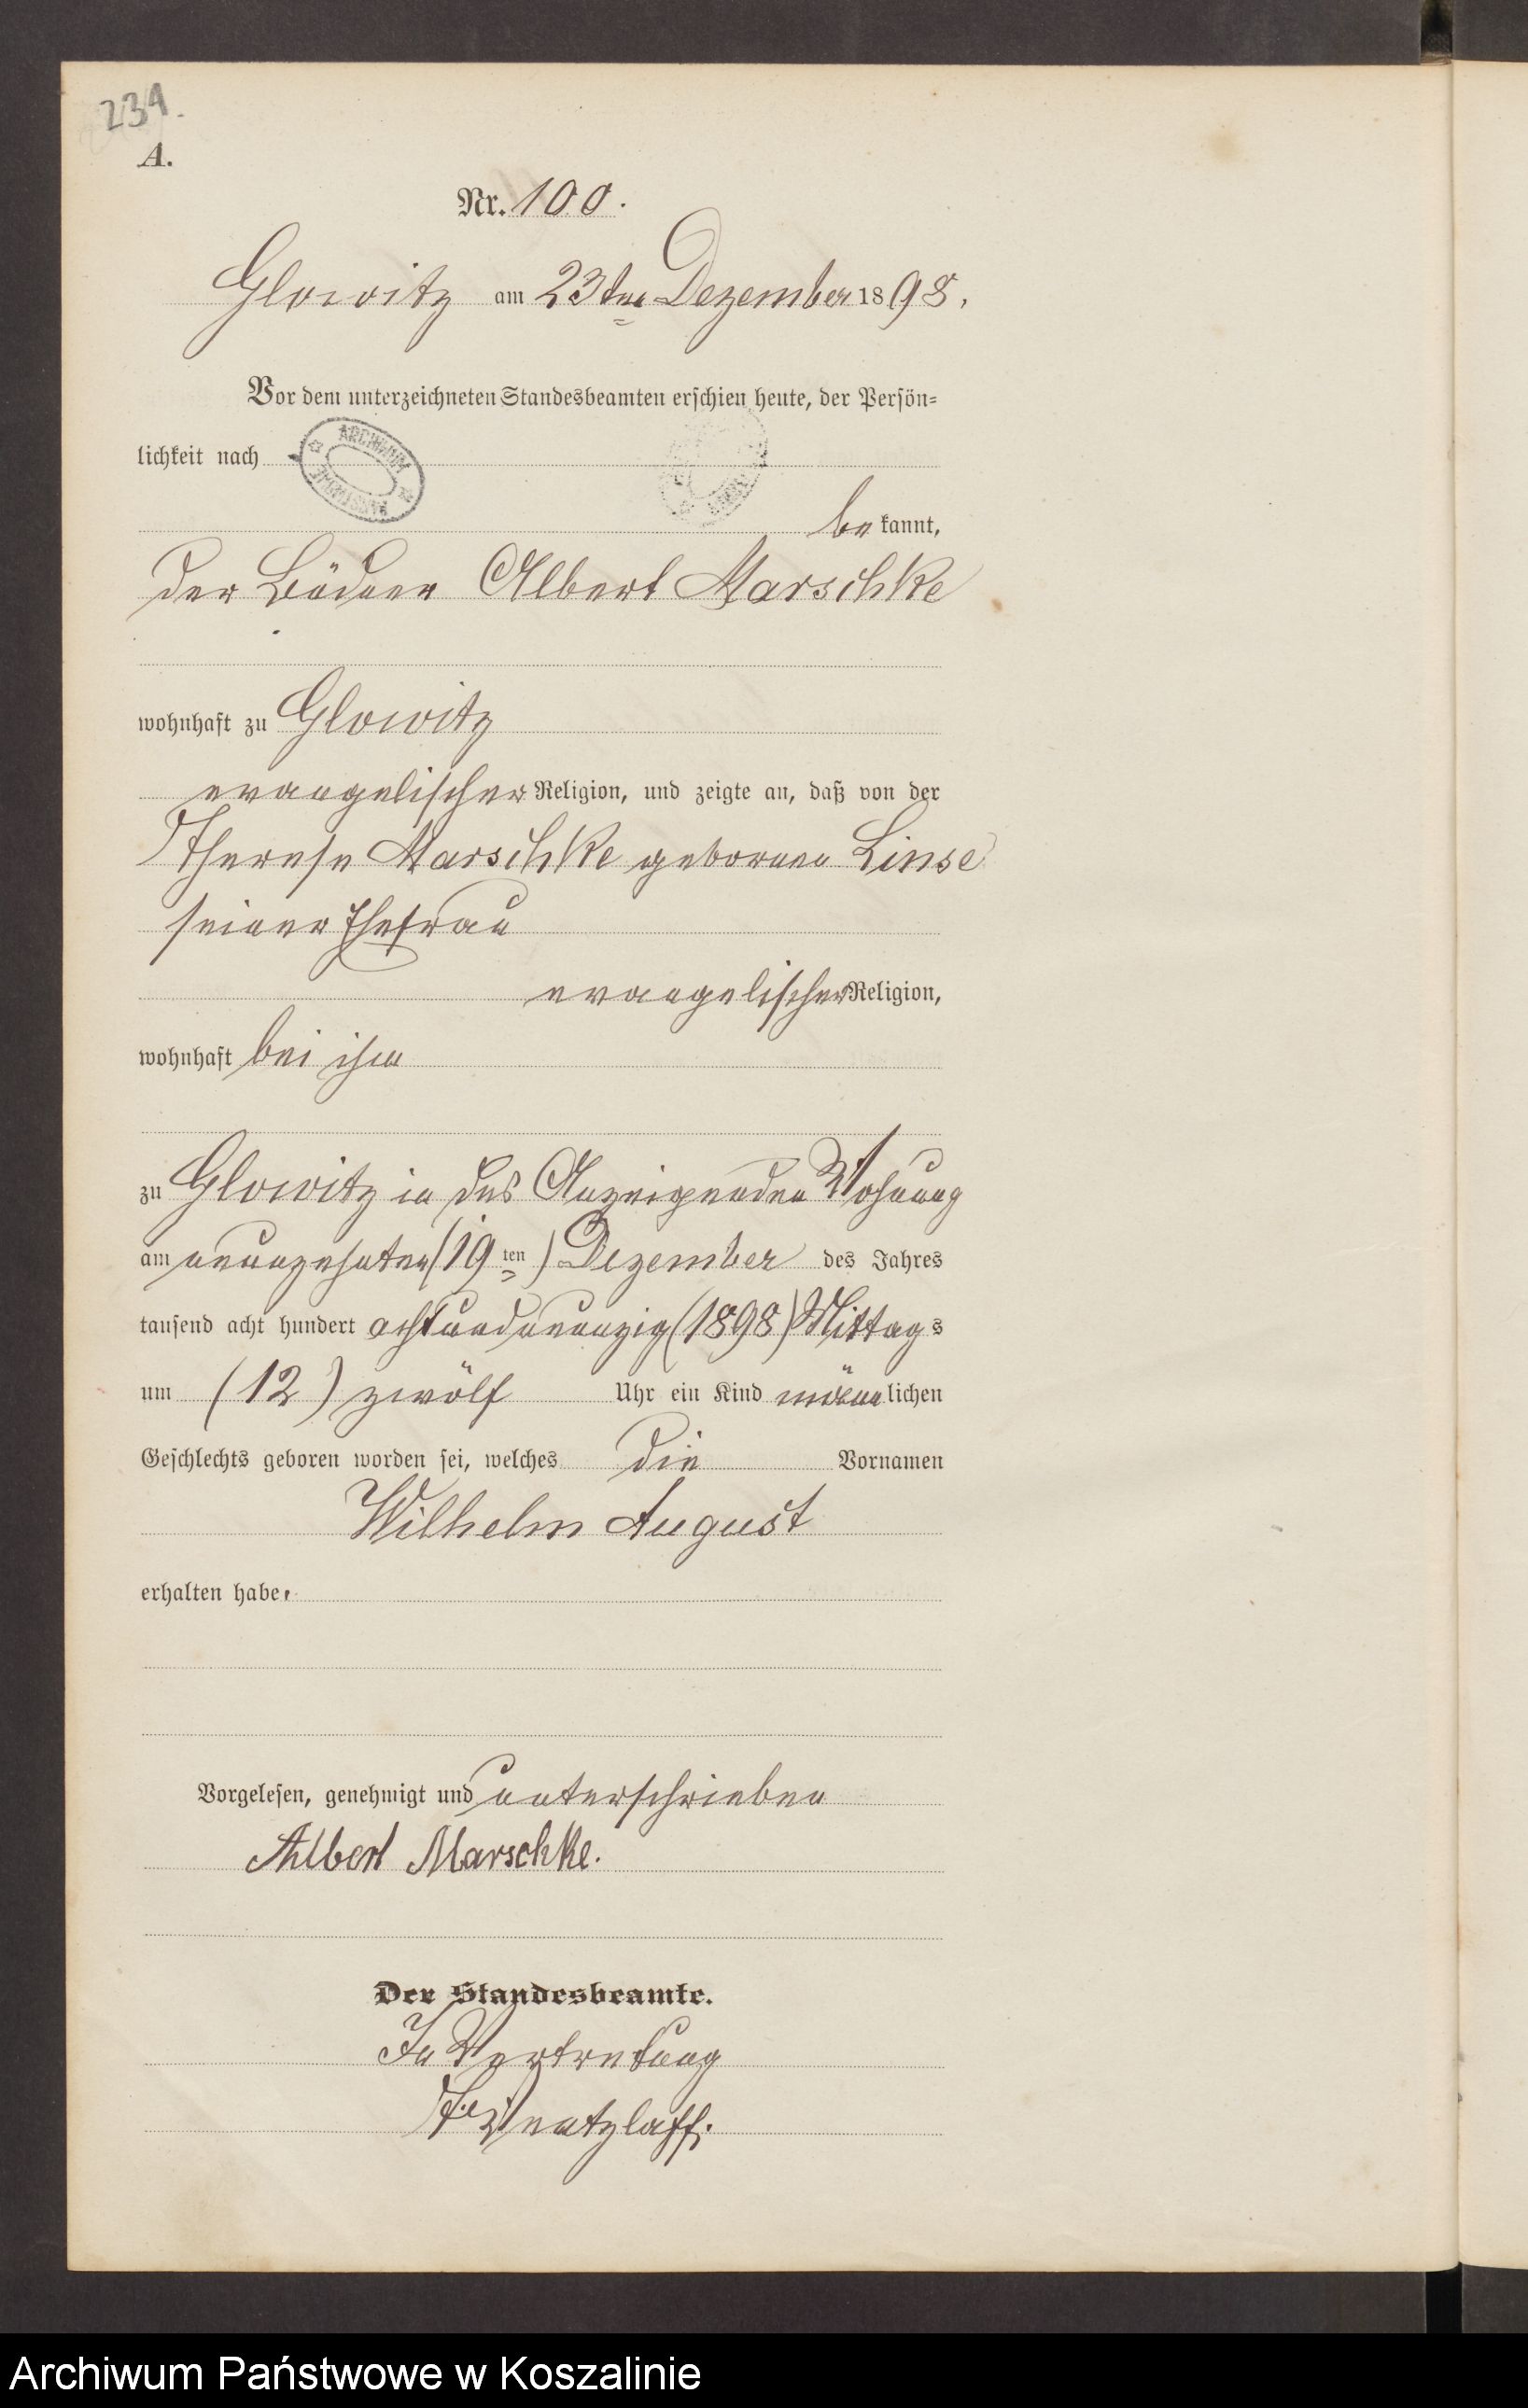 234.
A.
Nr. 100.
Glowitz am 23ten Dezember 1898.
Vor dem unterzeichneten Standesbeamten erschien heute, der Persön-
lichkeit nach
ARCHIWUM
bekannt,
der Büdner Albert Marschke
wohnhaft zu Glowitz
evangelischer Religion, und zeigte an, daß von der
Therese Marschke geborenen Linse
seiner Ehefrau
evangelischer Religion,
wohnhaft bei ihm
zu Glowitz in des Anzeigenden Wohnung
am neunzehnten (19 ten) Dezember des Jahres
tausend acht hundert achtundneunzig (1898) Mittags
um (12) zwölf Uhr ein Kind männlichen
Geschlechts geboren worden sei, welches die Vornamen
Wilhelm August
erhalten habe.
Vorgelesen, genehmigt und unterschrieben
Albert Marschke.
Der Standesbeamte.
In Vertretung
Wentzlaff.
Archiwum Państwowe w Koszalinie